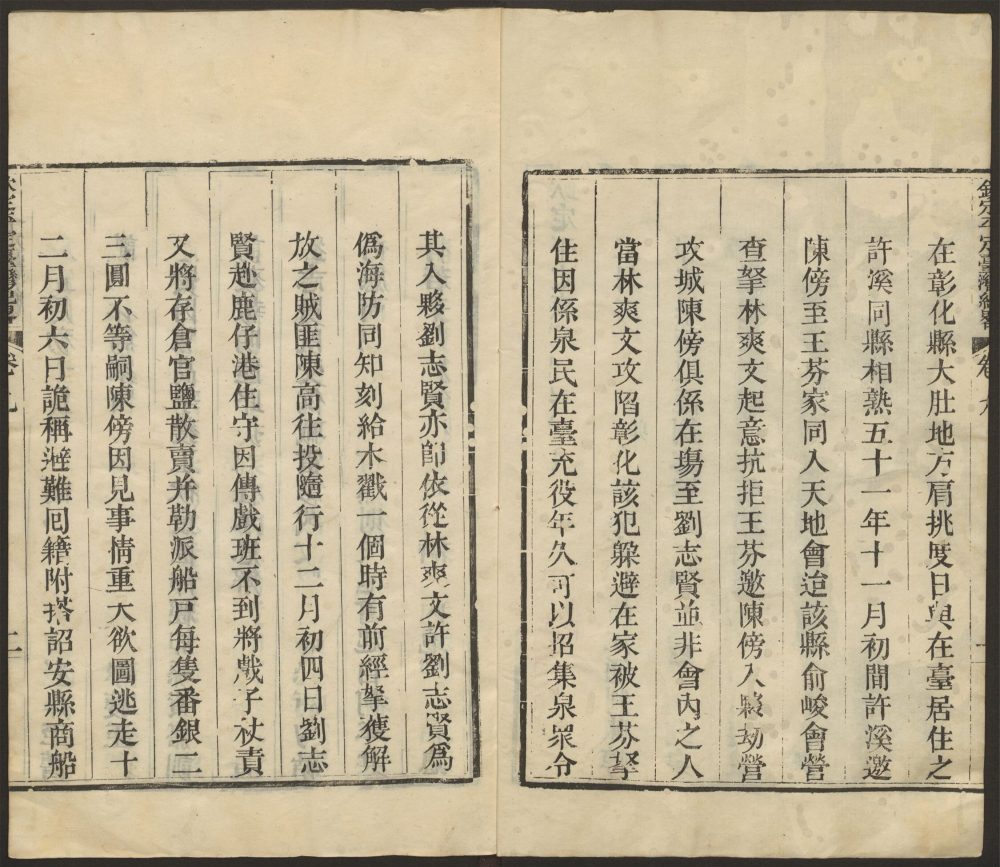 欽定平定臺灣紀畧 卷九 一
在彰化縣大肚地方肩挑度日與在臺居住之
許溪同縣相熟五十一年十一月初間許溪邀
陳傍至王芬家同入天地會迨該縣俞峻會營
查拏林爽文起意抗拒王芬邀陳傍入夥劫營
攻城陳傍俱係在塲至劉志賢並非會內之人
當林爽文攻陷彰化該犯躱避在家被王芬拏
住因係泉民在臺充役年久可以招集泉衆令
其入夥劉志賢亦卽依從林爽文許劉志賢爲
僞海防同知刻給木戳一個時有前經拏獲解
放之賊匪陳高往投隨行十二月初四日劉志
賢赴鹿仔港住守因傳戲班不到將戲子杖責
又將存倉官鹽散賣并勒派船戸每隻番銀二
三圓不等嗣陳傍因見事情重大欲圖逃走十
二月初六日詭稱避難囘籍附搭詔安縣商船
欽定平定臺灣紀畧 卷九 二